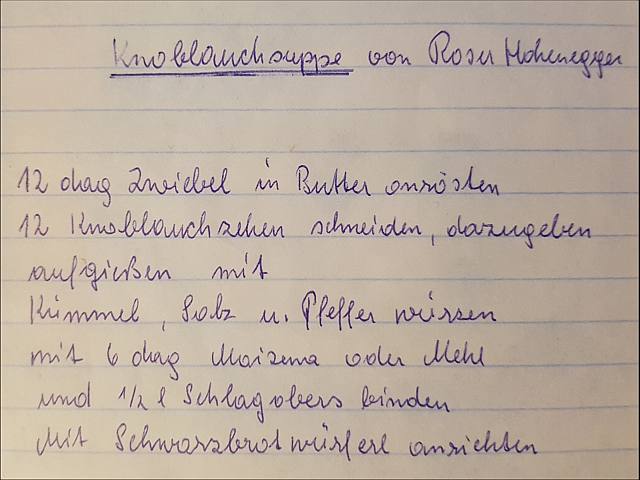 Knoblauchsuppe von Roser Hohenegger
12 dag Zwiebel in Butter anrösten
12 Knoblauchzehen schneiden, dazugeben
aufgießen mit
Kümmel, Salz u. Pfeffer würzen
mit 6 dag Maizena oder Mehl
und 1/2 l Schlagobers binden
Mit Schwarzbrotwürferl anrichten